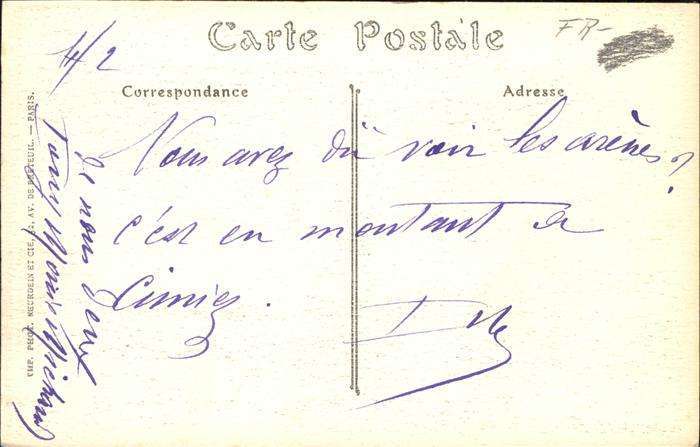 Carte Postale
FR-
4/2
Correspondance
Adresse
Vous avez dû voir les arènes?
c'est en montant à
Cimiez.
de nous deux
IMP. PHOT. NEURDEIN ET CIE, 52, AV. DE BRETEUIL. — PARIS.